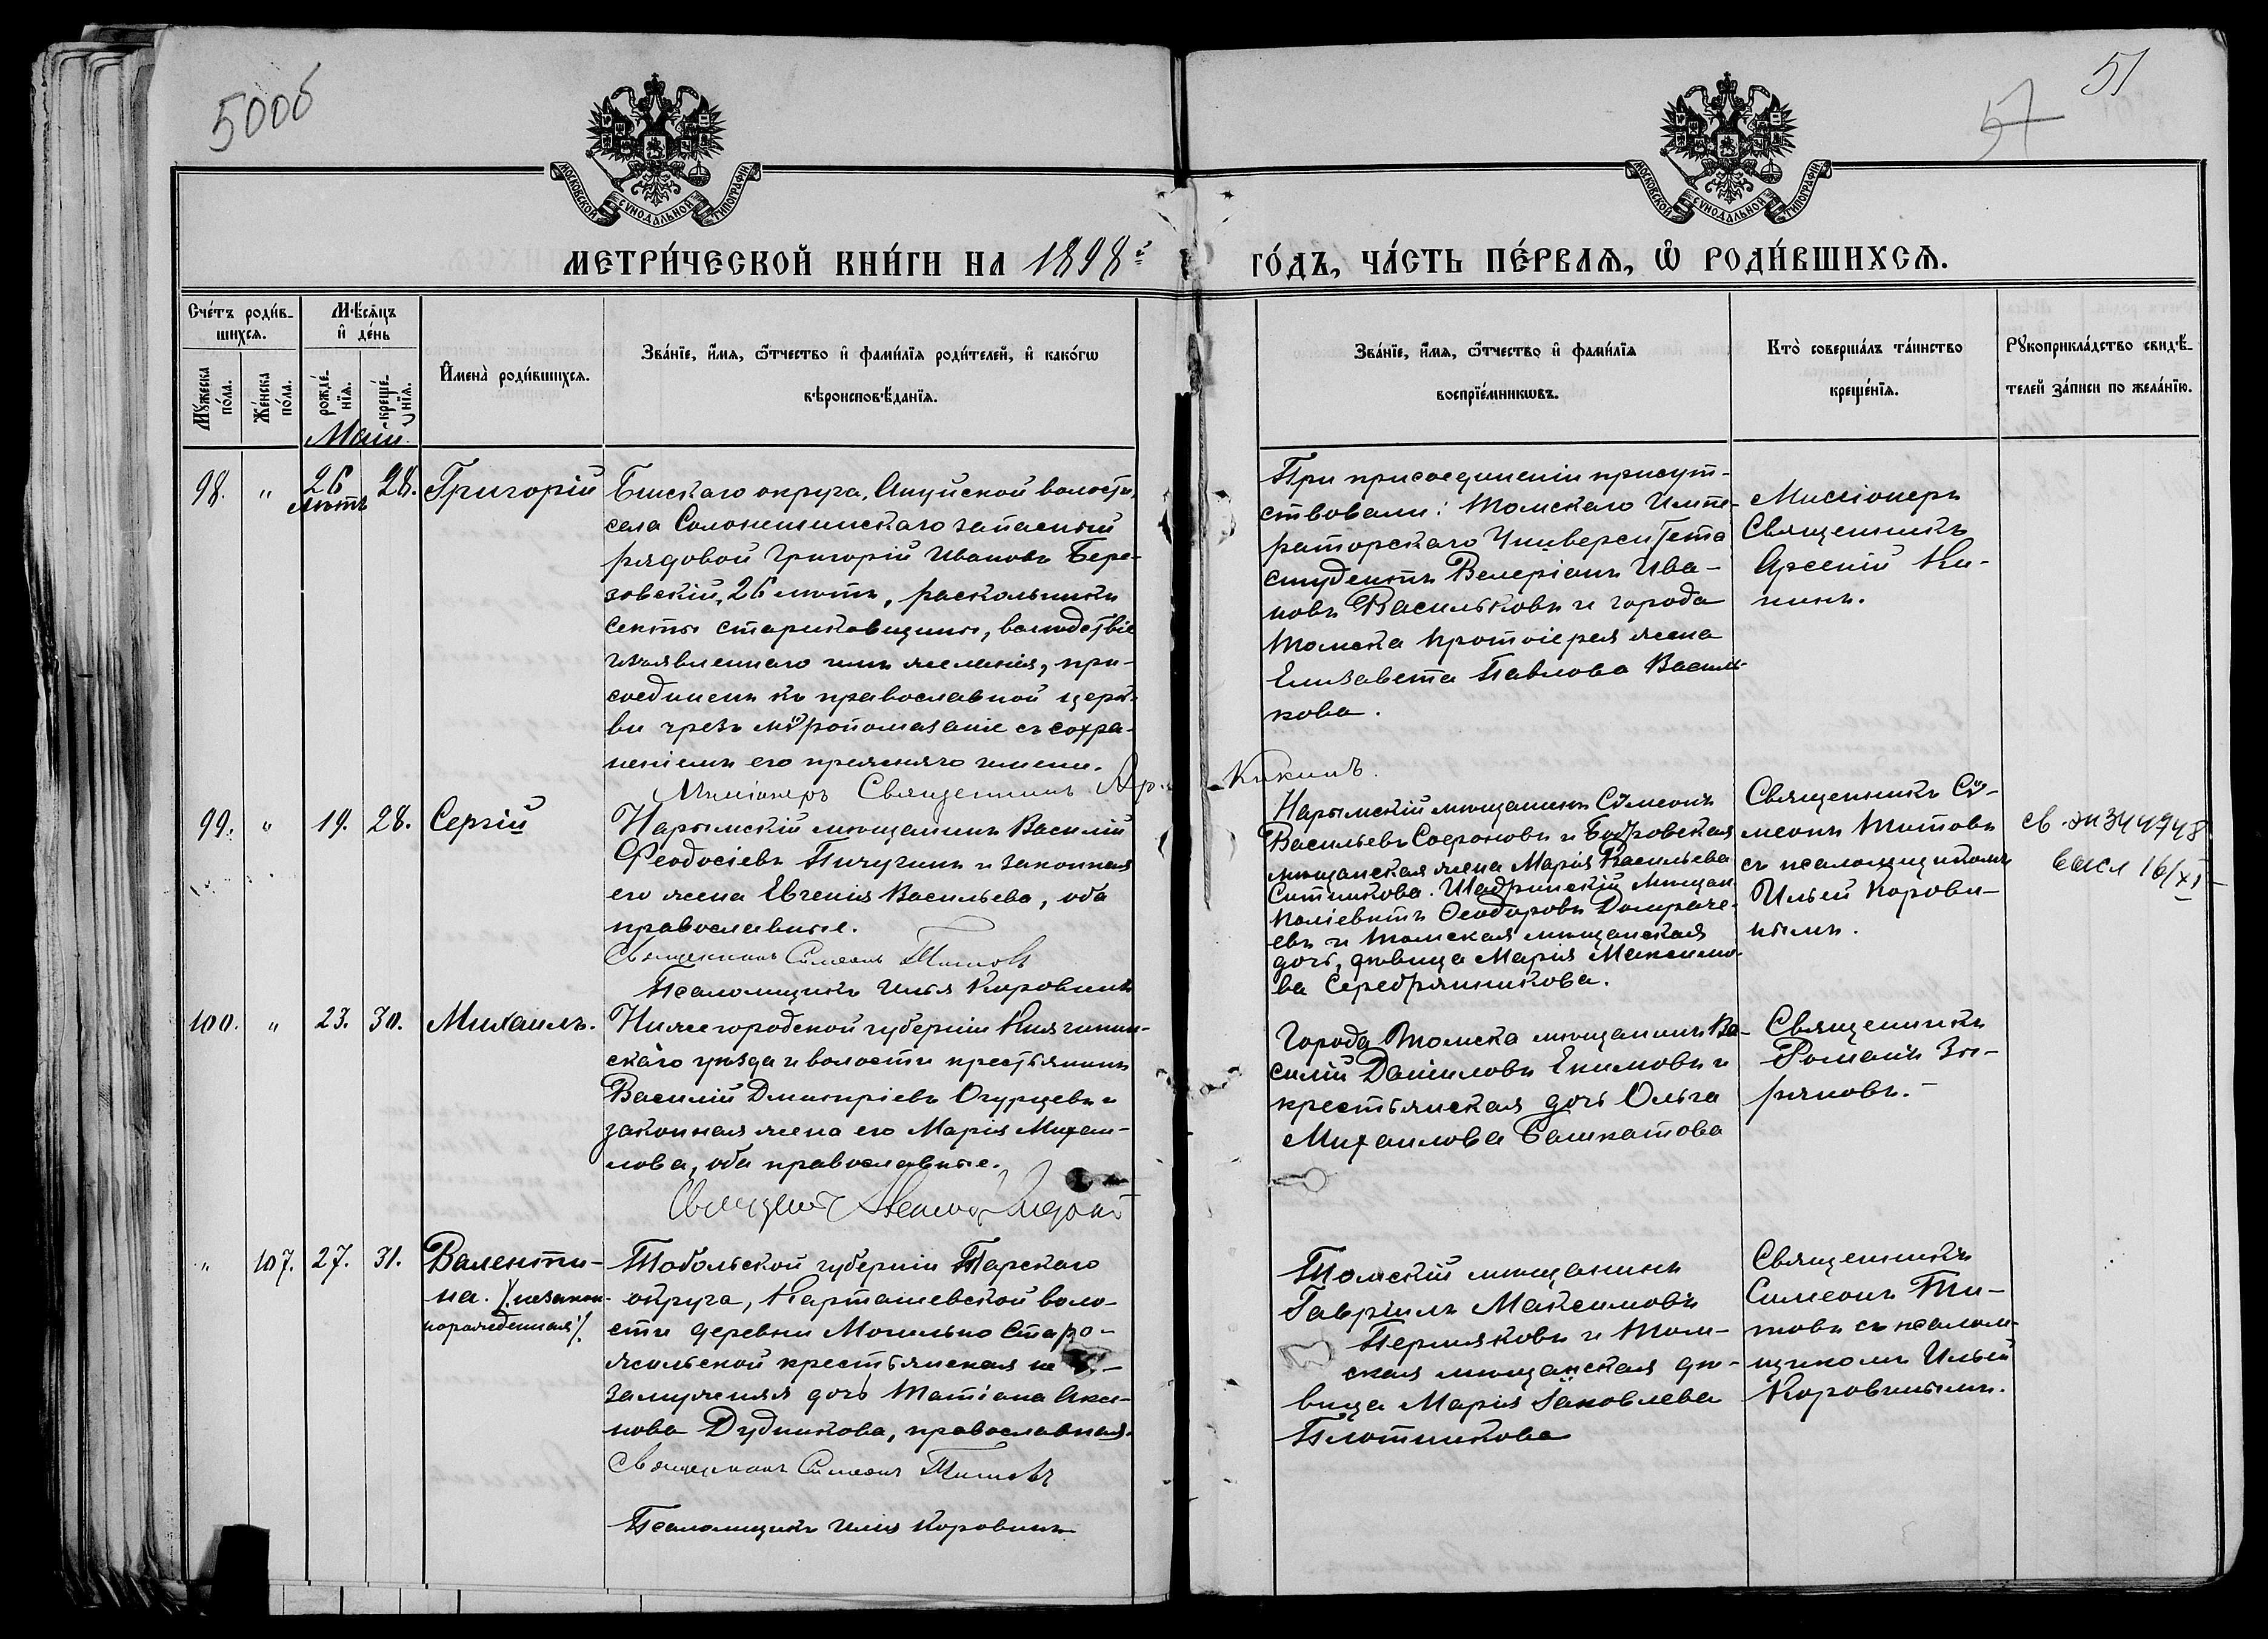 50об
51
57
МОСКОВСКОЙ СѴНОДАЛЬНОЙ ТИПОГРАФІИ
МОСКОВСКОЙ СѴНОДАЛЬНОЙ ТИПОГРАФІИ
МЕТРИ́ЧЕСКОЙ КНИ́ГИ НА 1898й
ГО́ДЪ, ЧА́СТЬ ПЕ́РВАѦ, Ѿ РОДИ́ВШИХСѦ.
Сче́тъ роди́в-
шихсѧ.
Мꙋ́жеска
по́ла.
Же́нска
по́ла.
Мѣ́сѧцъ
и҆ де́нь
рожде́-
нїѧ.
креще́-
нїѧ.
И҆мена̀ роди́вшихсѧ.
Зва́нїе, и҆́мѧ, ѻ҆́тчество и҆ фами́лїѧ роди́телей, и҆ како́гѡ
вѣроисповѣ́данїѧ.
Зва́нїе, и҆́мѧ, ѻ҆́тчество и҆ фами́лїѧ
воспрїе́мникѡвъ.
Кто̀ соверша́лъ та́инство
креще́нїѧ.
Рꙋкоприкла́дство свидѣ́-
телей за́писи по жела́нїю.
Май
98.
"
26
лѣтъ
28.
Григорій
Бійскаго округа, Ануйской волости,
села Солонешинскаго запасный
рядовой Григорій Ивановъ Бере-
зовскій, 26 лѣтъ, раскольникъ
секты стариковщины, вслѣдствіе
изъявленнаго имъ желанія, при-
соединенъ къ православной церк-
ви чрезъ мѵропомазаніе съ сохра-
неніемъ его прежняго имени.
Миссіонеръ Священникъ Ар. Кикинъ.
При присоединеніи присут-
ствовали: Томскаго Импе-
раторскаго Университета
студентъ Валеріанъ Ива-
новъ Васильковъ и города
Томска протоіерея жена
Елизавета Павлова Василь-
кова.
Миссіонеръ
Священникъ
Арсеній Ки-
кинъ.
99.
"
19.
28.
Сергій
Нарымскій мѣщанинъ Василій
Феодосіевъ Пичугинъ и законная
его жена Евгенія Васильева, оба
православные.
Священникъ Симеонъ Титовъ
Псаломщикъ Илья Коровинъ
Нарымскій мѣщанинъ Сѵмеонъ
Васильевъ Софроновъ и Бобровская
мѣщанская жена Марія Васильева
Ситникова. Шадринскій мѣщан.
Поліевктъ Ѳеодоровъ Домраче-
евъ и томская мѣщанская
дочь, дѣвица Марія Максимо-
ва Серебрянникова.
Священникъ Сѵ-
меонъ Титовъ
съ псаломщикомъ
Ильей Корови-
нымъ.
св. эн 344748
высл 16/XI
100.
"
23.
30.
Михаилъ.
Нижегородской губерніи Княгинин-
скаго уѣзда и волости крестьянинъ
Василій Дмитріевъ Огурцевъ и
законная жена его Марія Михаи-
лова, оба православные.
Города Томска мѣщанинъ Ва-
силій Даниловъ Екимовъ и
крестьянская дочь Ольга
Михаилова Башкатова
Священникъ
Романъ Зы-
ряновъ.
"
107.
27.
31.
Валенти-
на. /незакон-
норожденная/
Тобольской губерніи Тарскаго
округа, Карташевской воло-
сти деревни Могильно Старо-
жильской крестьянская не
замужняя дочь Татіана Аки-
нова Дудникова, православная.
Священникъ Симеонъ Титовъ
Псаломщикъ Илья Коровинъ
Томскій мѣщанинъ
Гавріилъ Максимовъ
Пермяковъ и том-
ская мѣщанская дѣ-
вица Марія Іаковлева
Плотникова
Священникъ
Симеонъ Ти-
товъ съ псалом-
щикомъ Ильей
Коровинымъ.